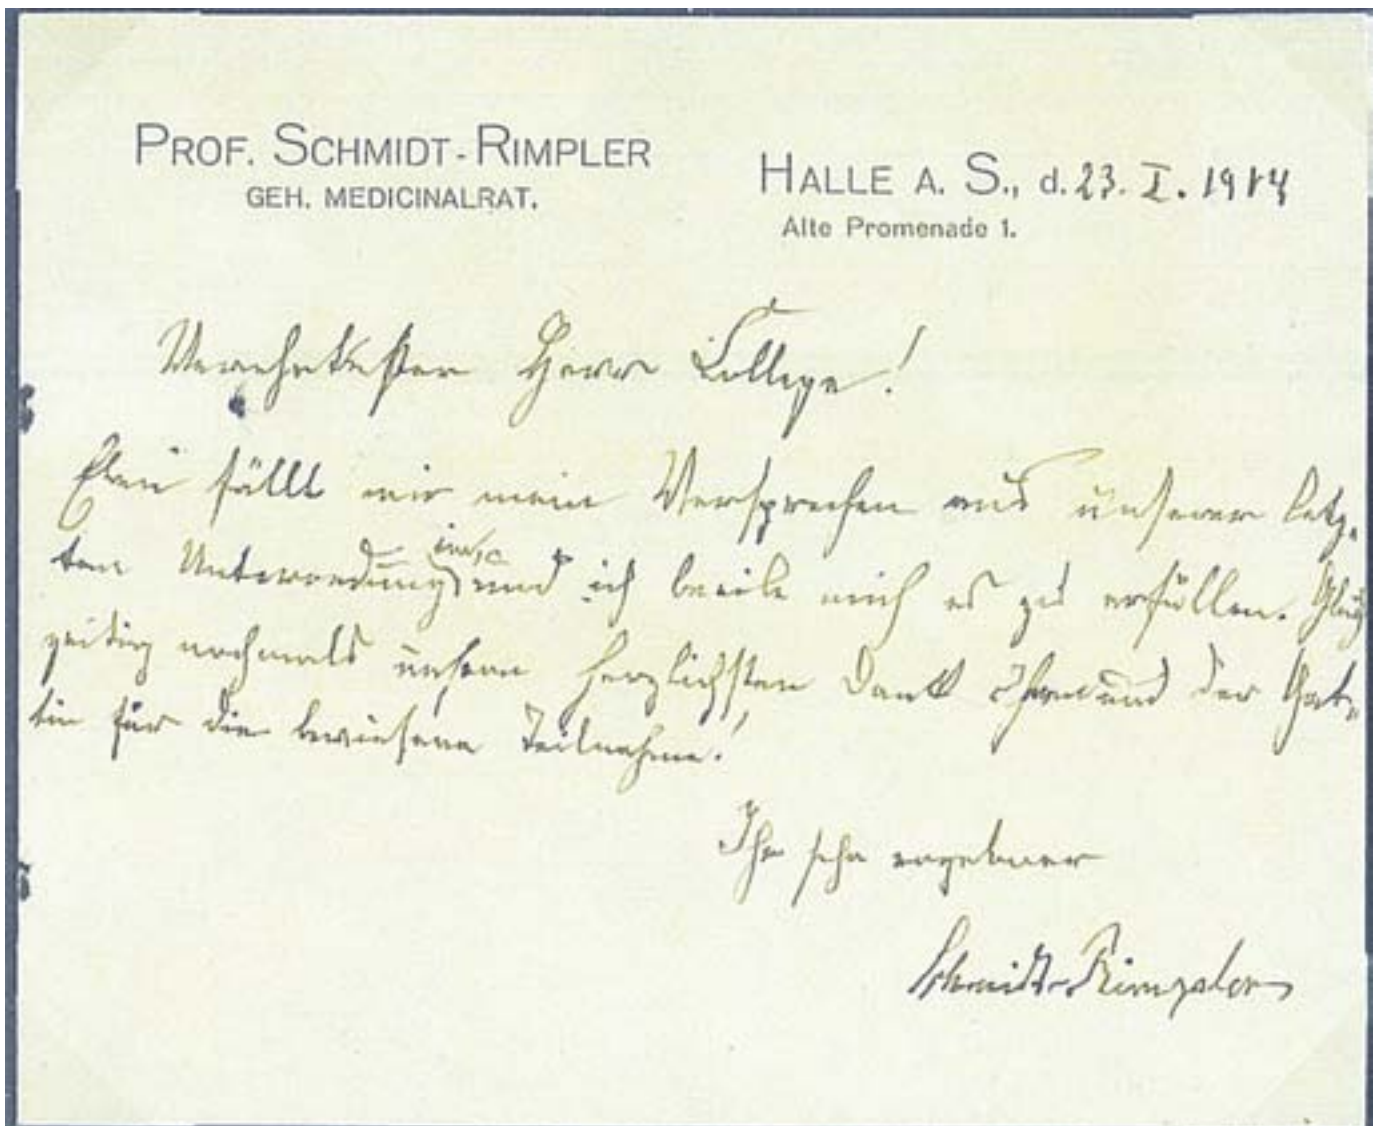 PROF. SCHMIDT-RIMPLER
GEH. MEDICINALRAT.
HALLE A. S., d. 23. I. 1914
Alte Promenade 1.
Verehrtester Herr College!
Eben fällt mir mein Versprechen aus unserer letz-
ten Unterredung und ich beeile mich es zu erfüllen. Gleich
zeitig nochmals unsern herzlichsten Dank Ihnen und der Gat-
tin für die bewiesene Teilnahme!
Ihr sehr ergebener
Schmidt-Rimpler